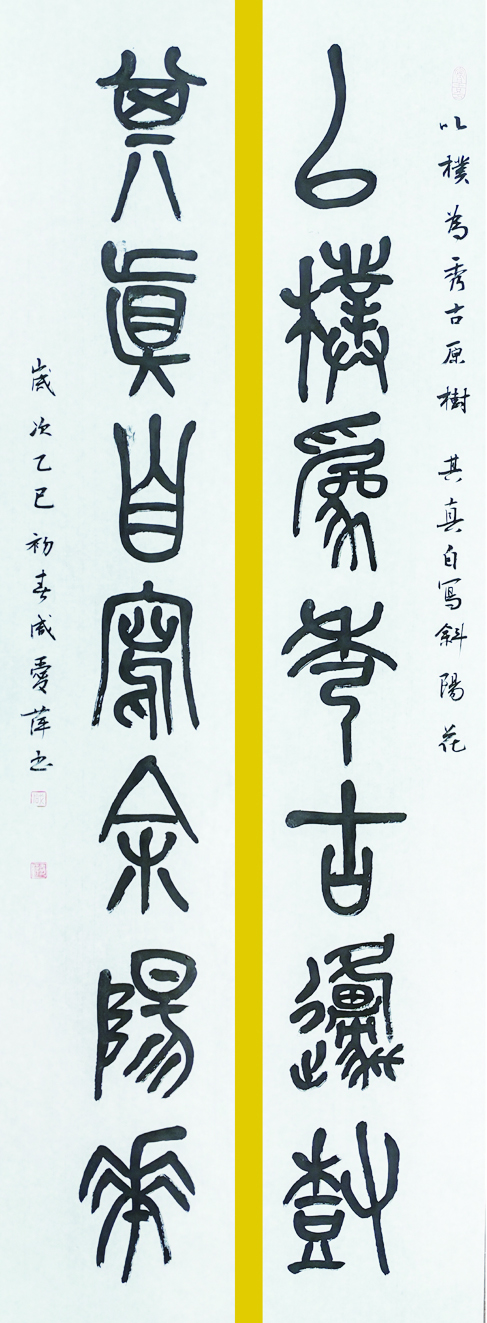 以樸為秀古原樹 其真自寫斜陽花
以樸為秀古邍尌
其真自寫余陽華
歲次乙巳初春愛萍书